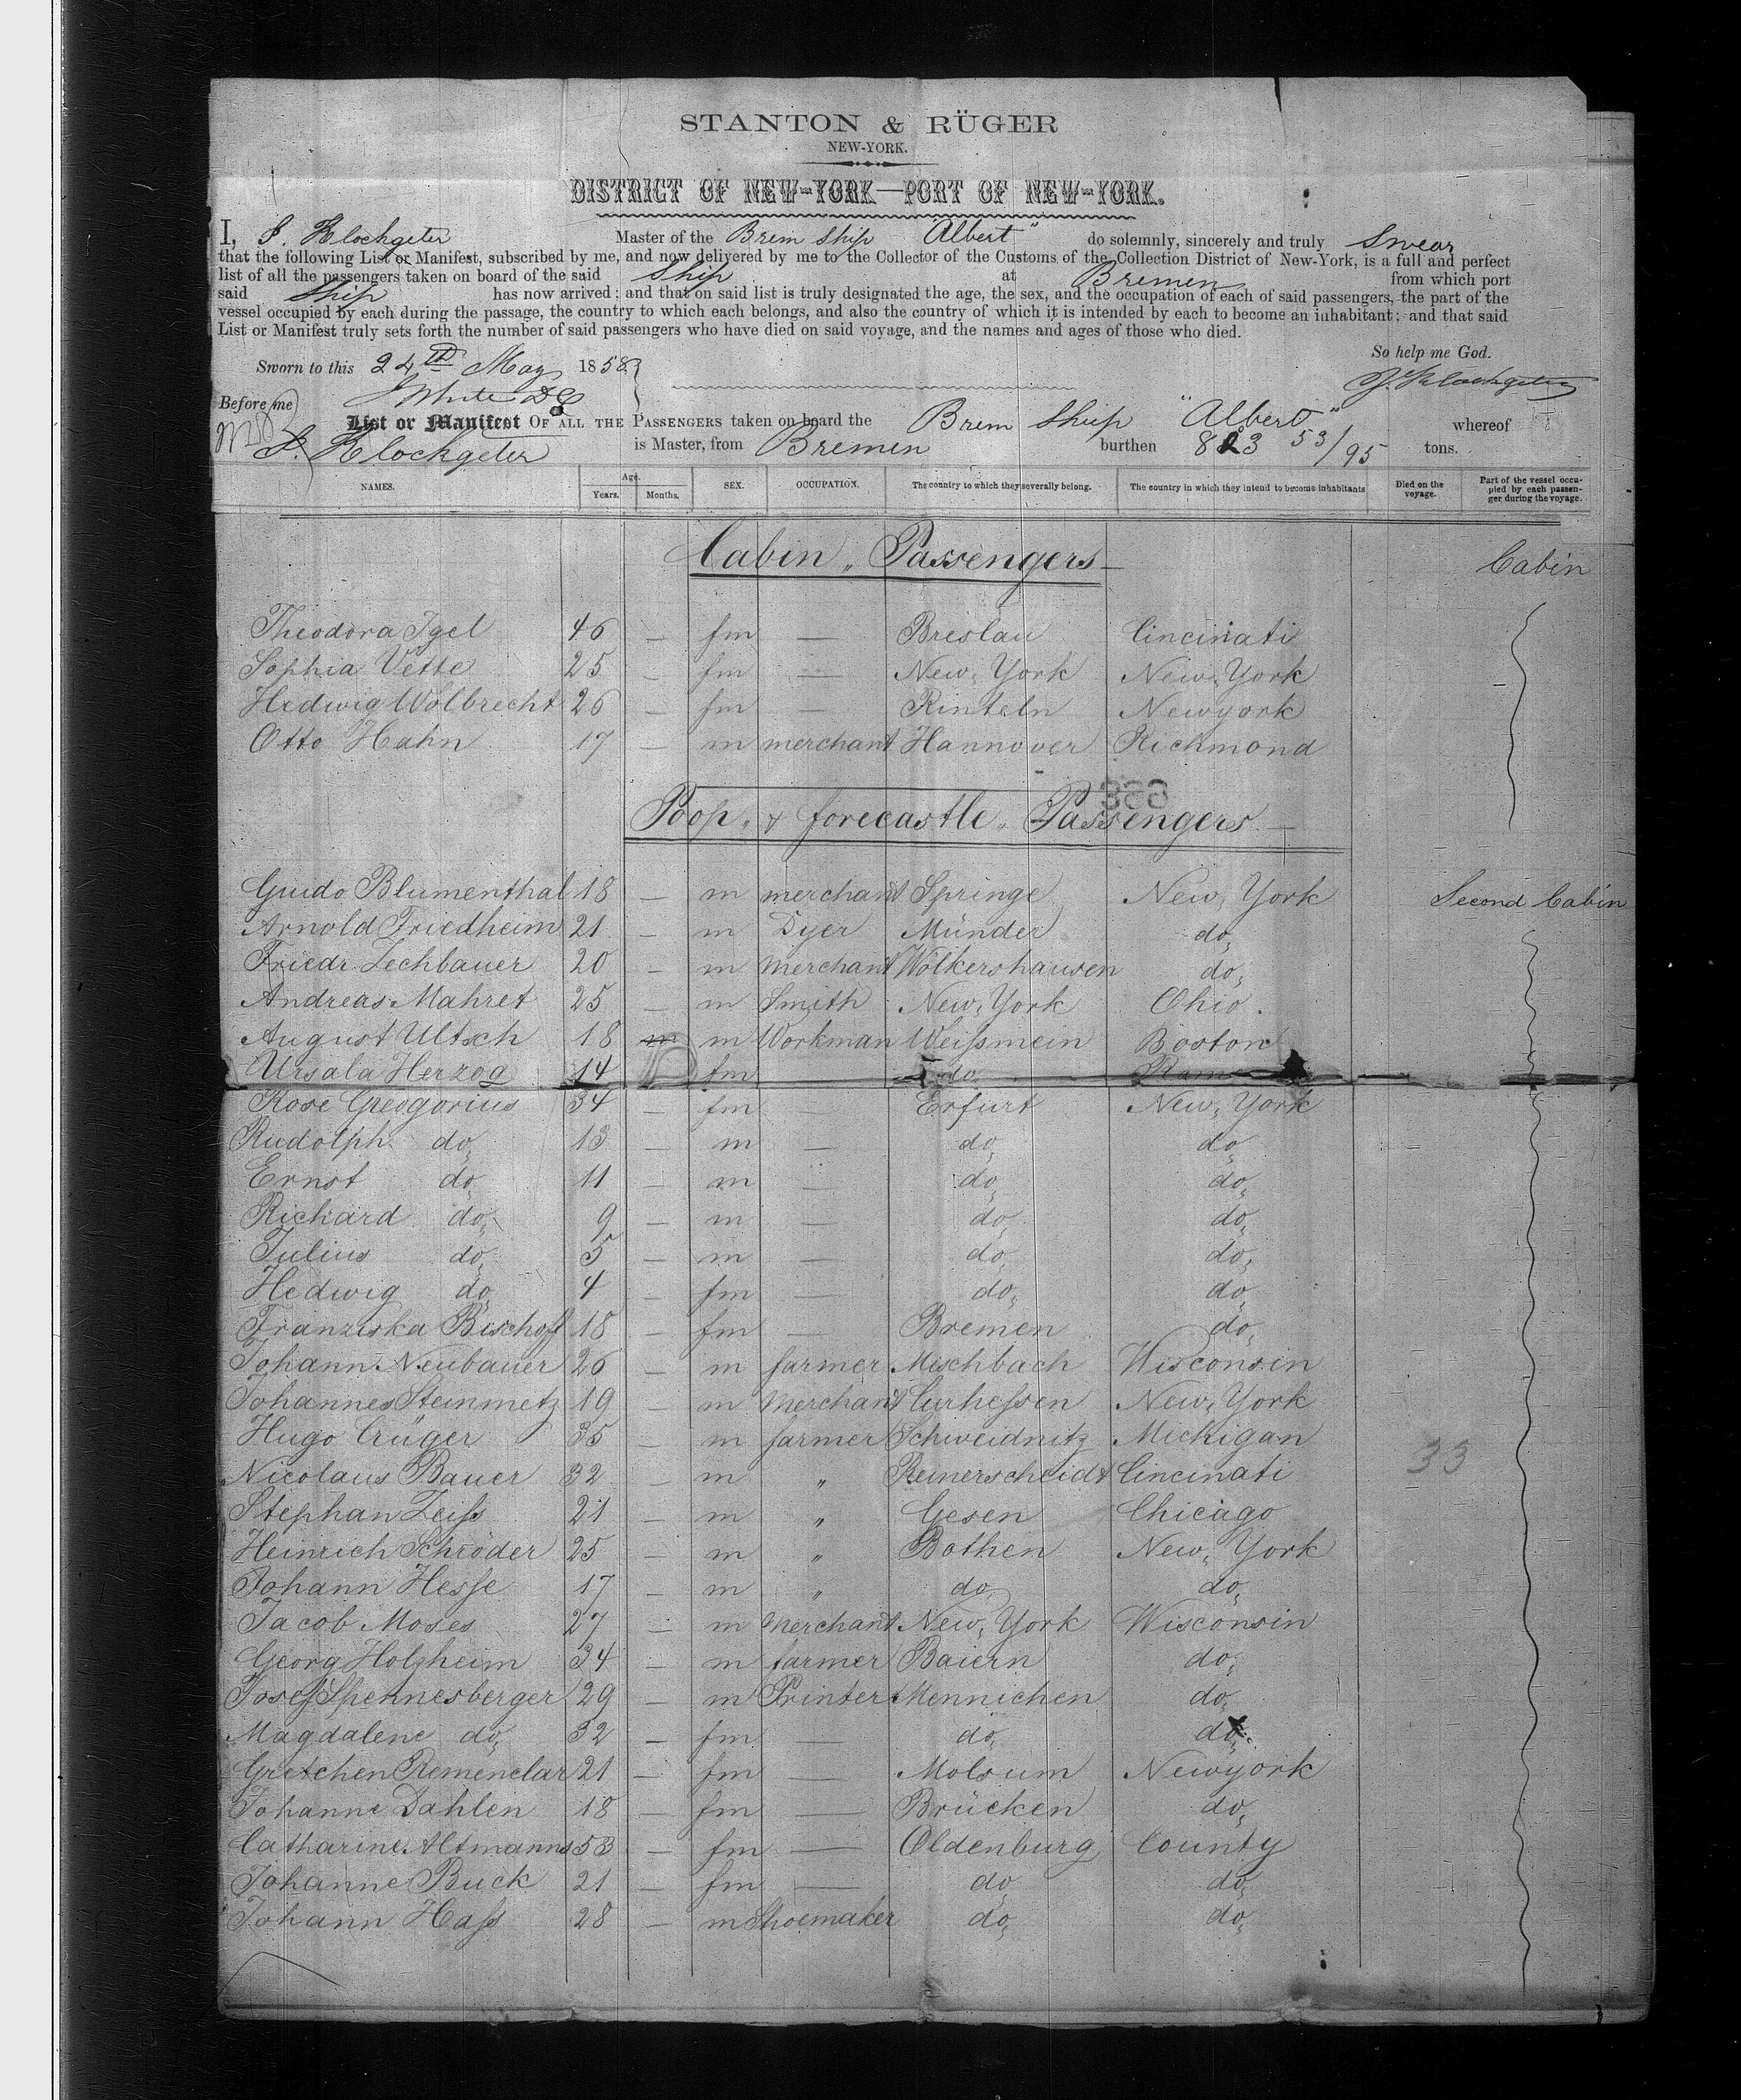 STANTON & RÜGER
NEW-YORK.
DISTRICT OF NEW-YORK—PORT OF NEW-YORK.
I, J. Klockgeter Master of the Brem Ship "Albert" do solemnly, sincerely and truly swear
that the following List or Manifest, subscribed by me, and now delivered by me to the Collector of the Customs of the Collection District of New-York, is a full and perfect
list of all the passengers taken on board of the said Ship at Bremen from which port
said Ship has now arrived; and that on said list is truly designated the age, the sex, and the occupation of each of said passengers, the part of the
vessel occupied by each during the passage, the country to which each belongs, and also the country of which it is intended by each to become an inhabitant; and that said
List or Manifest truly sets forth the number of said passengers who have died on said voyage, and the names and ages of those who died.
So help me God.
Sworn to this 24th May 1858
J. Klockgeter
Before me J White DC
List or Manifest OF ALL THE PASSENGERS taken on board the Brem Ship "Albert" whereof
J. Klockgeter is Master, from Bremen burthen 823 53/95 tons.
NAMES. Age. Years. Months. SEX. OCCUPATION. The country to which they severally belong. The country in which they intend to become inhabitants Died on the voyage. Part of the vessel occupied by each passenger during the voyage.
Cabin „ Passengers Cabin
Theodora Igel 46 — fm — Breslau Cincinati
Sophia Vette 25 — fm — New, York New, York
Hedwig Wolbrecht 26 — fm — Rinteln Newyork
Otto Hahn 17 — m merchant Hannover Richmond
Poop „ & forecastle „ Passengers.
Guido Blumenthal 18 — m merchant Springe New, York Second Cabin
Arnold Friedheim 21 — m Dyer Münder do,
Friedr. Zechbauer 20 — m Merchant Wölkershausen do,
Andreas Mahret 25 — m Smith New, York Ohio.
August Ultsch 18 m m Workman Weißmein Boston
Ursala Herzog 14 fm do
Rose Gregorius 34 — fm — Erfurt New, York
Rudolph do, 13 — m — do, do,
Ernst do, 11 — m — do, do,
Richard do, 9 — m — do, do,
Julius do, 5 — m — do, do,
Hedwig do, 4 — fm — do, do,
Franziska Bischoff 18 — fm — Bremen do,
Johann Neubauer 26 — m farmer Mischbach Wisconsin
Johannes Steinmetz 19 — m Merchant Curhessen New, York
Hugo Crüger 35 — m farmer Schweidnitz Michigan
33
Nicolaus Bauer 32 — m „ Reinerscheidt Cincinati
Stephan Zeiß 21 — m „ Gesen Chicago
Heinrich Schröder 25 — m „ Bothen New, York
Johann Hesse 17 — m „ do, do,
Jacob Moses 27 — m Merchant New, York Wisconsin
Georg Holzheim 34 — m farmer Baiern do,
Josef Spennesberger 29 — m Printer Mennichen do,
Magdalene do, 32 — fm — do, do,
Gretchen Remenclar 21 — fm — Molsum Newyork
Johanne Dahlen 18 — fm — Brücken do,
Catharine Altmanns 53 — fm — Oldenburg County
Johanne Buck 21 — fm — do, do,
Johann Haß 28 — m Shoemaker do, do,